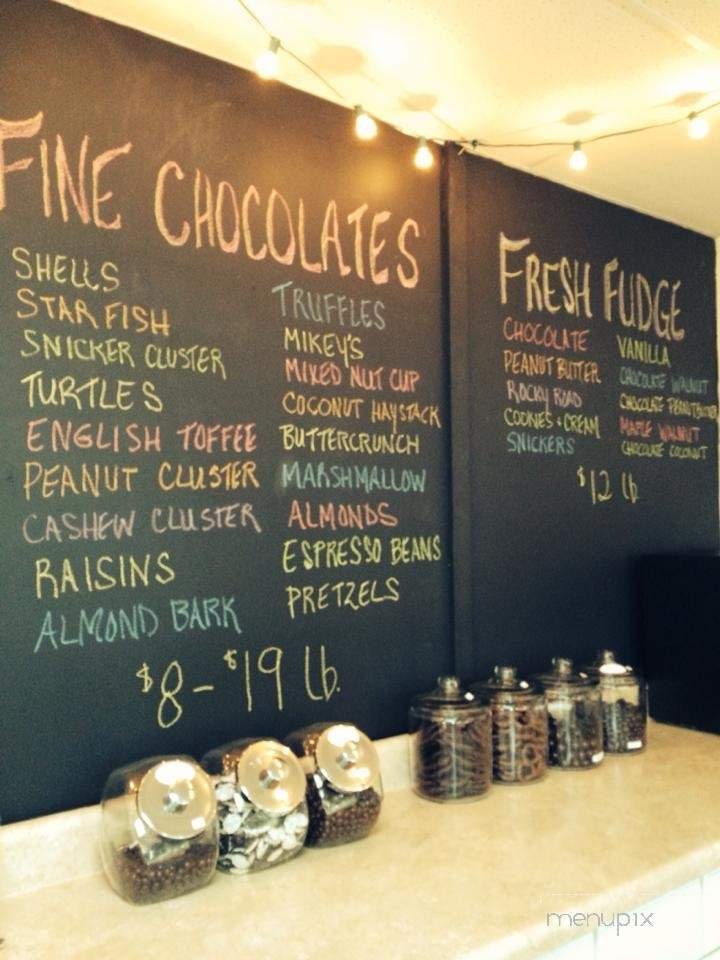 FINE CHOCOLATES
SHELLS
STAR FISH
SNICKER CLUSTER
TURTLES
ENGLISH TOFFEE
PEANUT CLUSTER
CASHEW CLUSTER
RAISINS
ALMOND BARK
TRUFFLES
MIKEY'S
MIXED NUT CUP
COCONUT HAYSTACK
BUTTERCRUNCH
MARSHMALLOW
ALMONDS
ESPRESSO BEANS
PRETZELS
$8-$19 lb.
FRESH FUDGE
CHOCOLATE
PEANUT BUTTER
ROCKY ROAD
COOKIES & CREAM
SNICKERS
VANILLA
CHOCOLATE WALNUT
CHOCOLATE PEANUTBUTTER
MAPLE WALNUT
CHOCOLATE COCONUT
$12 lb
menupix